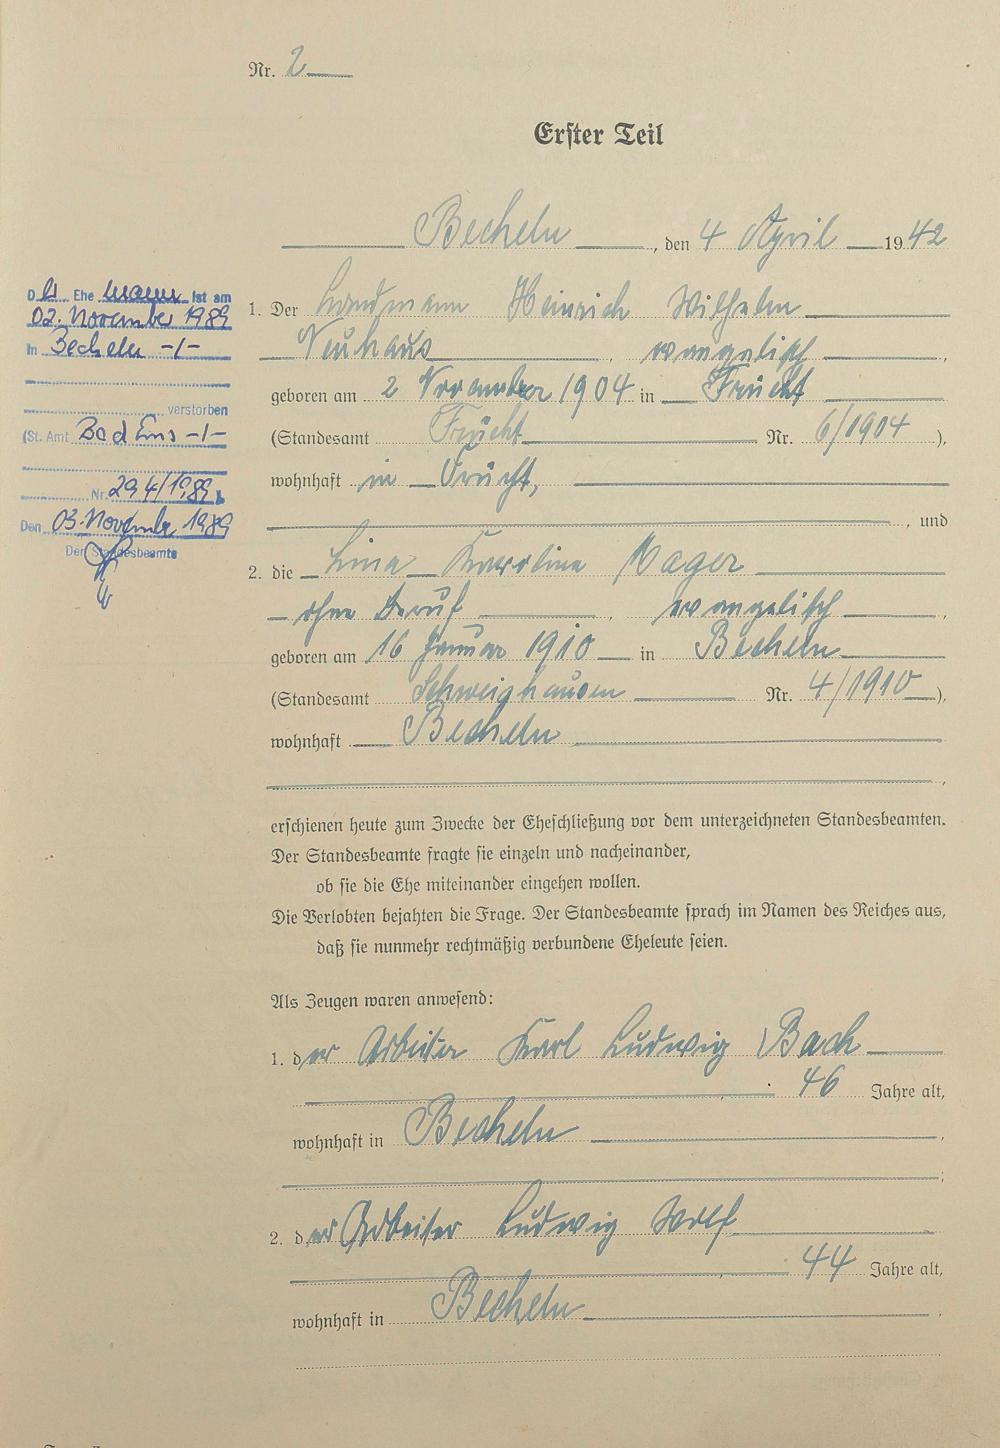 Nr. 2
Erster Teil
Becheln, den 4 April 1942
1. Der Landmann Heinrich Wilhelm
Neuhaus, evangelisch,
geboren am 2 November 1904 in Frücht
(Standesamt Frücht Nr. 6/1904),
wohnhaft in Frücht,
, und
2. die Lina Karoline Mager
ohne Beruf, evangelisch,
geboren am 16 Januar 1910 in Becheln
(Standesamt Schweighausen Nr. 4/1910),
wohnhaft Becheln
,
erschienen heute zum Zwecke der Eheschließung vor dem unterzeichneten Standesbeamten.
Der Standesbeamte fragte sie einzeln und nacheinander,
ob sie die Ehe miteinander eingehen wollen.
Die Verlobten bejahten die Frage. Der Standesbeamte sprach im Namen des Reiches aus,
daß sie nunmehr rechtmäßig verbundene Eheleute seien.
Als Zeugen waren anwesend:
1. der Arbeiter Karl Ludwig Bach
, 46 Jahre alt,
wohnhaft in Becheln,
;
2. der Arbeiter Ludwig Wolf
, 44 Jahre alt,
wohnhaft in Becheln.
Der Ehemann ist am
02. November 1989
in Becheln -/-
verstorben
(St. Amt Bad Ems -/-
Nr. 294/1989).
Den 03. November 1989
Der Standesbeamte